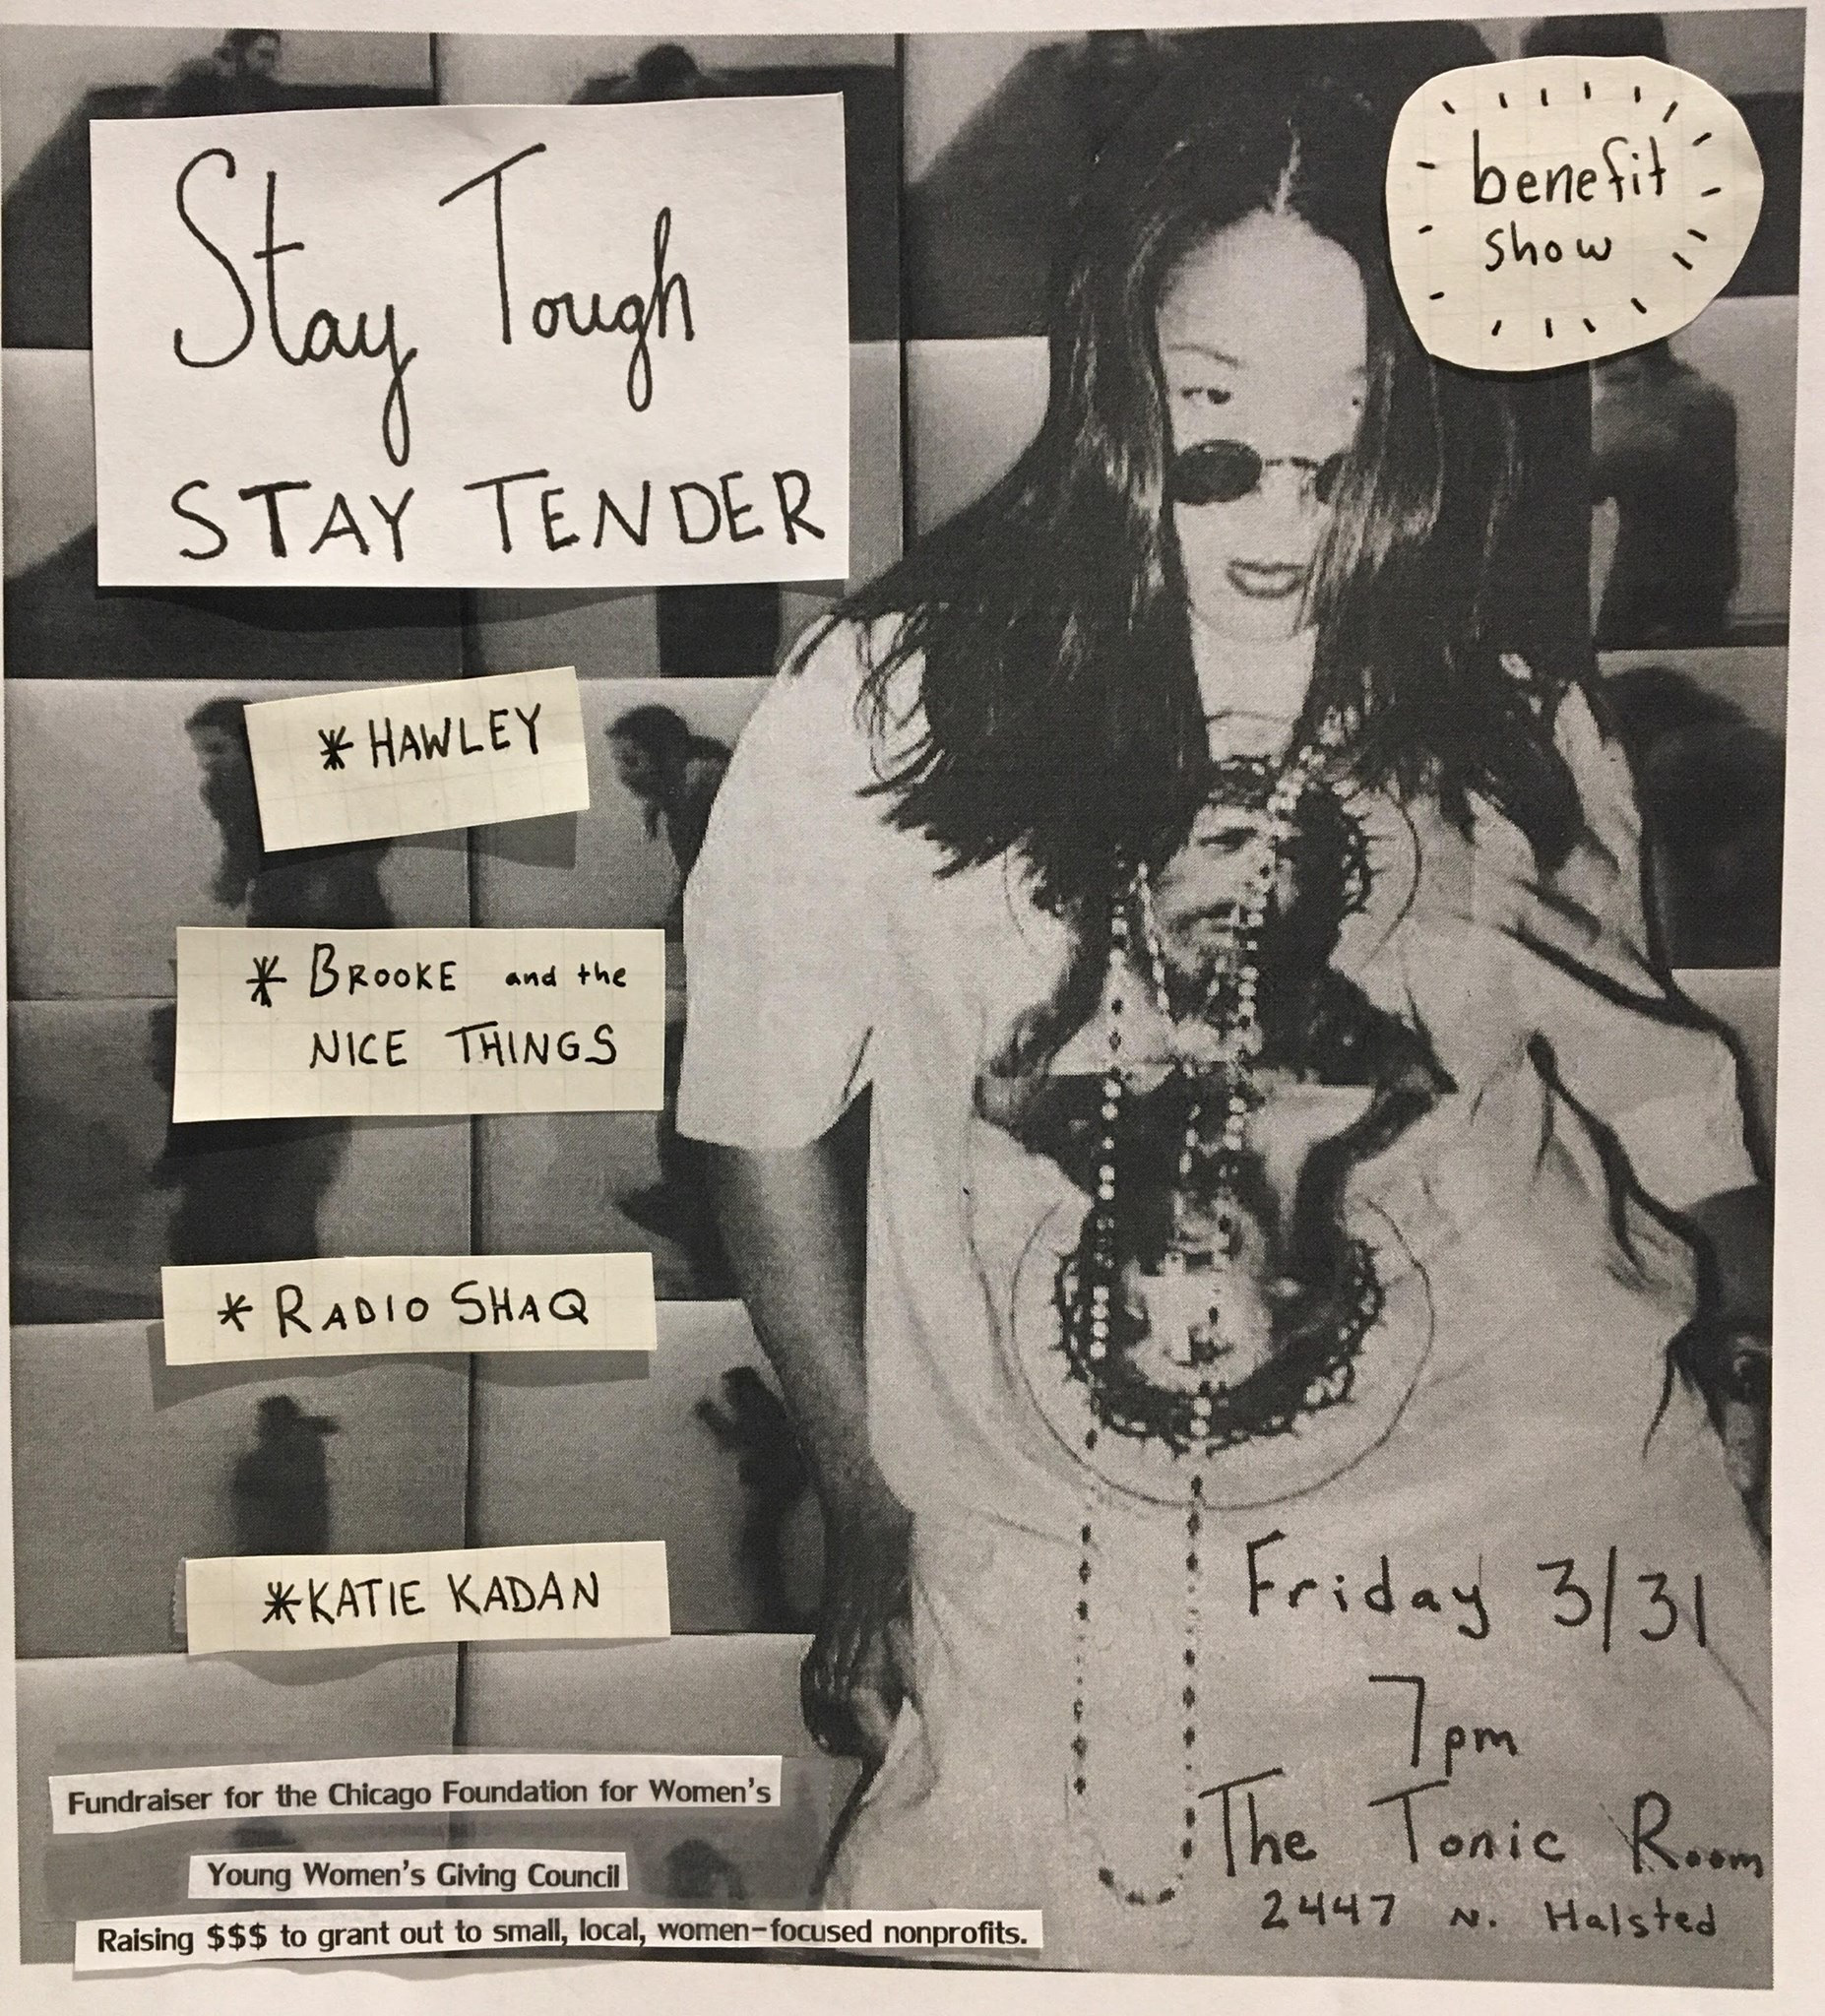 benefit
show
Stay Tough
STAY TENDER
* HAWLEY
* BROOKE and the
NICE THINGS
* RADIO SHAQ
* KATIE KADAN
Friday 3/31
7pm
The Tonic Room
2447 N. Halsted
Fundraiser for the Chicago Foundation for Women's
Young Women's Giving Council
Raising $$$ to grant out to small, local, women-focused nonprofits.